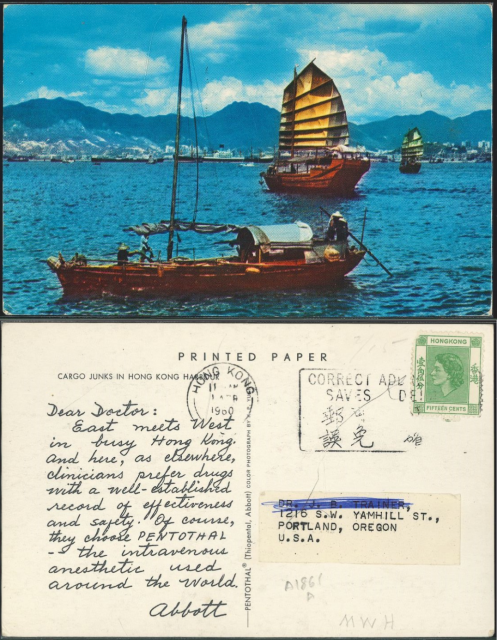 PRINTED PAPER
CARGO JUNKS IN HONG KONG HARBOUR
HONG KONG
1960
CORRECT ADD
SAVES DE
郵
誤 免
HONGKONG
香港
壹角伍分
FIFTEEN CENTS
Dear Doctor:
East meets West
in busy Hong Kong.
and here, as elsewhere,
clinicians prefer drugs
with a well-established
record of effectiveness
and safety. Of course,
they choose PENTOTHAL
- the intravenous
anesthetic used
around the World.
Abbott
PENTOTHAL® (Thiopental, Abbott) COLOR PHOTOGRAPH BY
DR. J. B. TRAINER,
1216 S.W. YAMHILL ST.,
PORTLAND, OREGON
U.S.A.
D1861
MWH